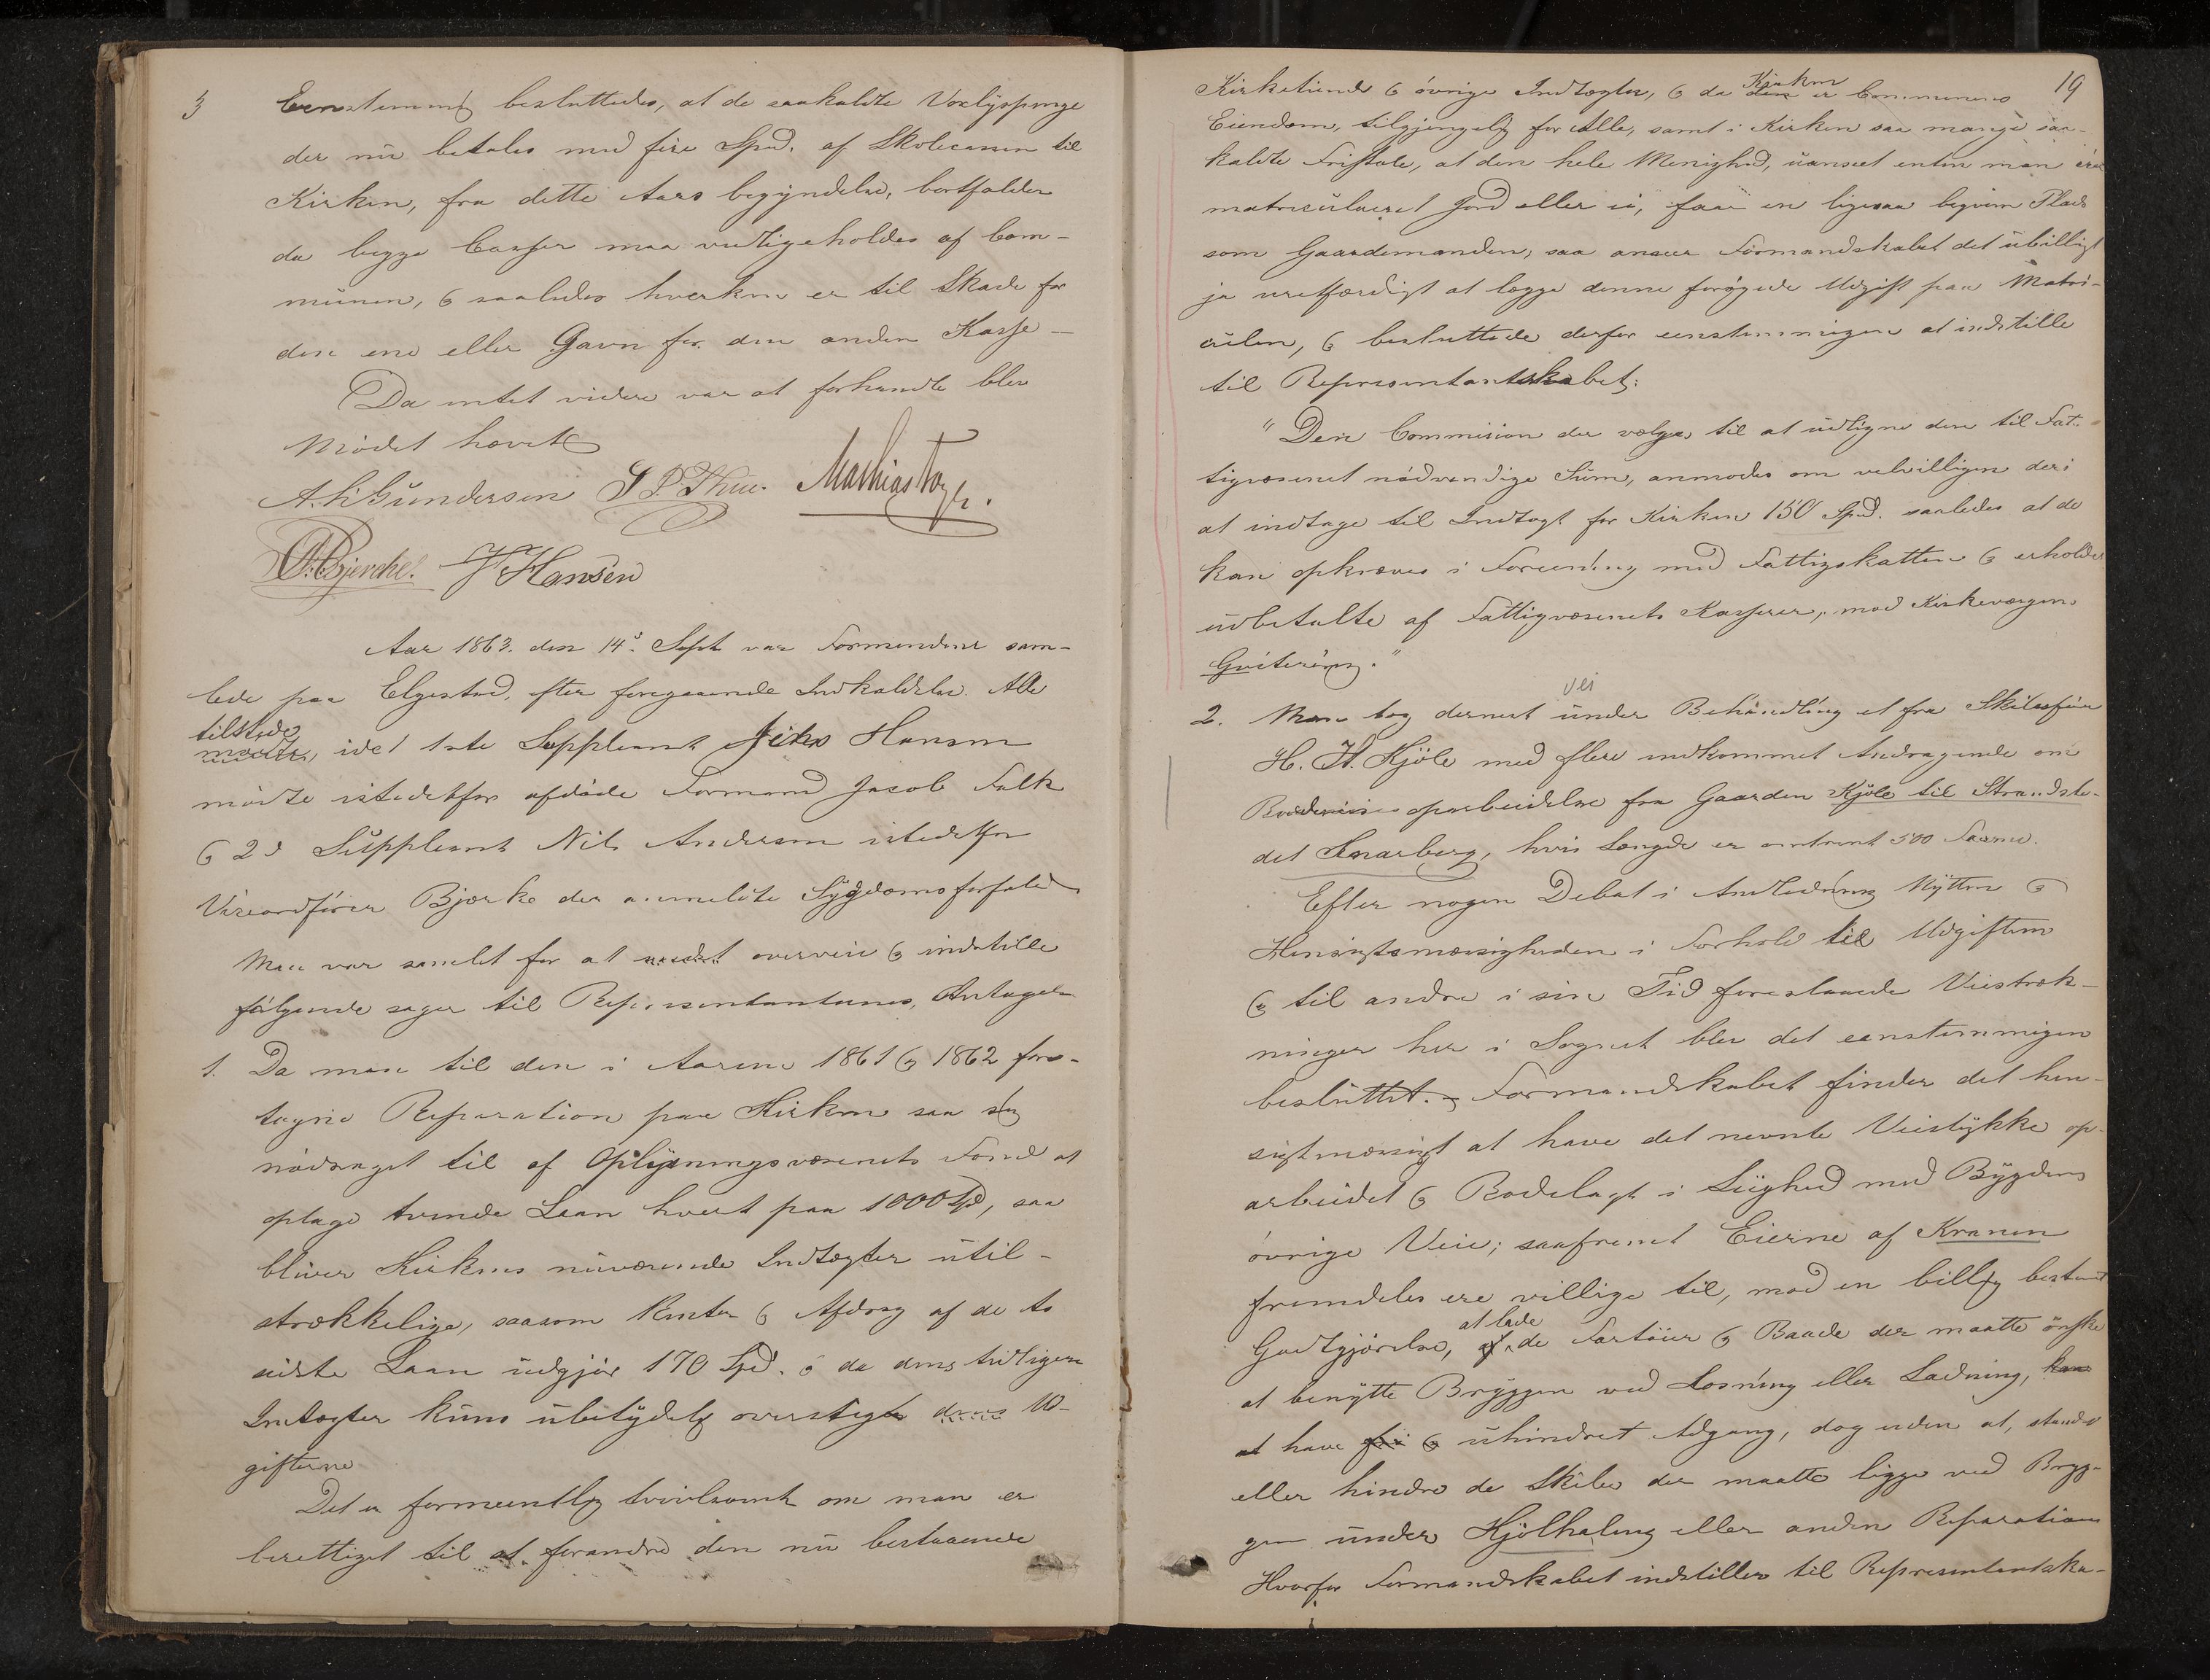 3 Eenstemmig besluttedes, at de saakaldte Voxlyspenge
der nu betales med fire Spd. af Skolecassen til
Kirken, fra dette Aars begyndelse, bortfalder
da begge Casser maa vedligeholdes af Com-
munen, & saaledes hverken er til Skade for
den ene eller Gavn for den anden Kasse —
Da intet videre var at forhandle blev
Mödet hævet
A. H Gundersen S P. Thue. Mathias
Bjerche. J Hansen
Aar 1863. den 14de Sept. var Formændene sam-
lede paa Elgestad, efter foregaaende Indkaldelse. Alle
tilstæde
mødte, idet 1ste Suppleant Jens Hansen
mödte istedetfor afdöde Formand Jacob Falk
& 2d Suppleant Nils Andersen istedetfor
Viceordförer Bjerke der anmeldte Sygdomsforfald
Man var samlet for at overveie & indstille
fölgende sager til Repræsentanternes Antagelse
1. Da man til den i Aarene 1861 & 1862 fore-
tagne Reparation paa Kirken saa sig
nödsaget til af Oplysningsvæsenets Fond at
optage tvende Laan hvert paa 1000 Spd, saa
bliver Kirkens nuværende Indtægter util-
strækkelige, saasom Renter & Afdrag af de to
sidste Laan udgjör 170 Spd. & da dens tidligere
Indtægter kuns ubetydelig oversteg dens Ud-
gifterne
Det er formeentlig tvivlsomt om man er
berettiget til at forandre den nu bestaaende
19
Kirken
Kirketiende & övrige Indtægter, & da den er Communens
Eiendom, tilgjengelig for Alle, samt i Kirken saa mange saa-
kaldte Fristole, at den hele Menighed, uanseet enten man eier
matriculeret Jord eller ei, faae en ligesaa beqvem Plads
som Gaardemanden, saa anseer Formandskabet det ubilligt
ja uretfærdigt at lægge denne forögede Udgift paa Matri-
culen, & besluttede derfor eenstemmigen at indstille
til Repræsentantskabet:
"Den Commision der vælges til at udligne den til Fat-
tigvæsenet nödvendige Sum, anmodes om velvilligen deri
at indtage til Indtægt for Kirken 150 Spd. saaledes at de
kan opkræves i Forening med Fattigskatten & erholdes
udbetalte af Fattigvæsenets Kasserer, mod Kirkeværgens
Qvitering."
vei
2. Man tog dernest under Behandling et fra Skibsförer
H. H. Kjöle med flere indkommet Andragende om
oparbeidelse fra Gaarden Kjöle til Strandste-
det Snarberg, hvis Længde er omtrent 500 Favne.
Efter nogen Debat i Anledning Nytten &
Hensigtsmæssigheden i Forhold til Udgiften
& til andre i sin Tid foreslaaede Veistræk-
ninger her i Sognet blev det eenstemmigen
besluttet. Formandskabet finder det hen-
sigtmæssigt at have det nevnte Veistykke op-
arbeidet & Rodelagt i Liighed med Bygdens
övrige Veie; saafremt Eierne af Kranen
fremdeles ere villige til, mod en billig bestemt
at lade
Godtgjörelse, af de Fartöier & Baade der maatte önske
at benytte Bryggen ved Losning eller Ladning, kan
at have fri & uhindret Adgang, dog uden at, standse
eller hindre de Skibe der maatte ligge ved Bryg-
gen under Kjölhaling eller anden Reparation
Hvorfor Formandskabet indstiller til Repræsentantska-